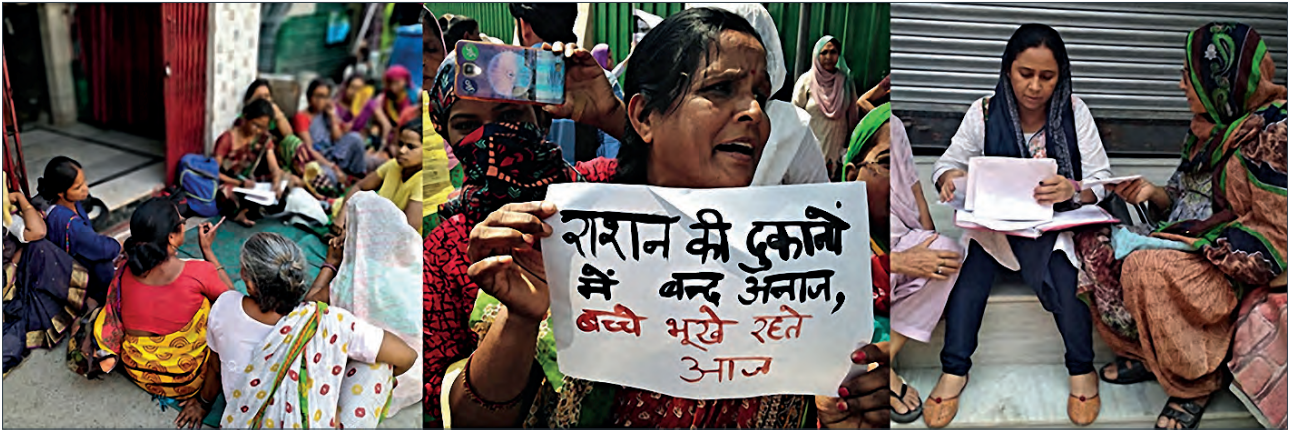 राशन की दुकानों
में बन्द अनाज,
बच्चे भूखे रहते
आज